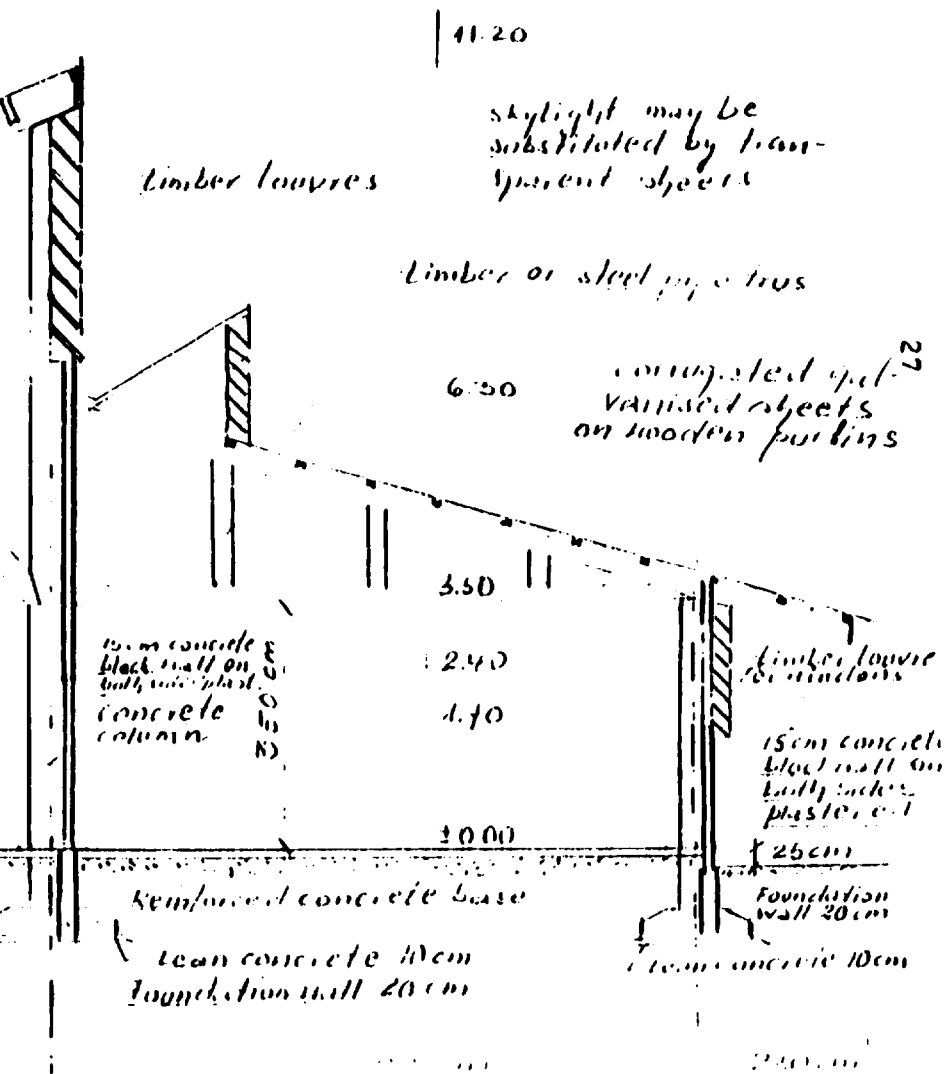 11.20
skylight may be
substituted by tran-
sparent sheets
timber louvres
timber or steel pipe trus
27
6.50
corrugated gal-
vanised sheets
on wooden purlins
3.50
15cm concrete
block wall on
both side plast.
concrete
column
350 cm
2.40
timber louvre
for windows
15cm concrete
block wall on
both sides
plastered
±0.00
25cm
Reinforced concrete base
Foundation
wall 20cm
lean concrete 10cm
Foundation wall 20cm
lean concrete 10cm